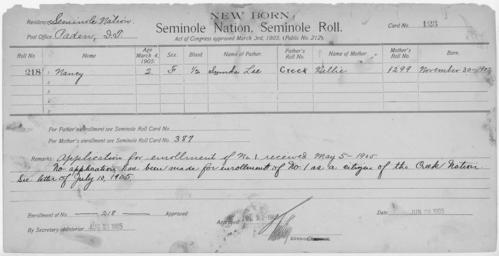 NEW BORN
Residence Seminole Nation. Seminole Nation. Seminole Roll. Card No. 123
Post Office Paden, I.T. Act of Congress approved March 3rd, 1905. (Public No. 212).
Roll No. Name Age March 4, 1905. Sex. Blood Name of Father Father's Roll No. Name of Mother Mother's Roll No. Born.
218 1 Nancy 2 F 1/2 Lee Creek Nellie 1299 November 20-1902
For Father's enrollment see Seminole Roll Card No.
For Mother's enrollment see Seminole Roll Card No. 387
Remarks: Application for enrollment of No. 1 received May 5-1905
No application has been made for enrollment of No 1 as a citizen of the Creek Nation
See letter of July 10, 1905.
Enrollment of No. 218 Approved Approved Date JUN 1905
By Secretary Interior 1905